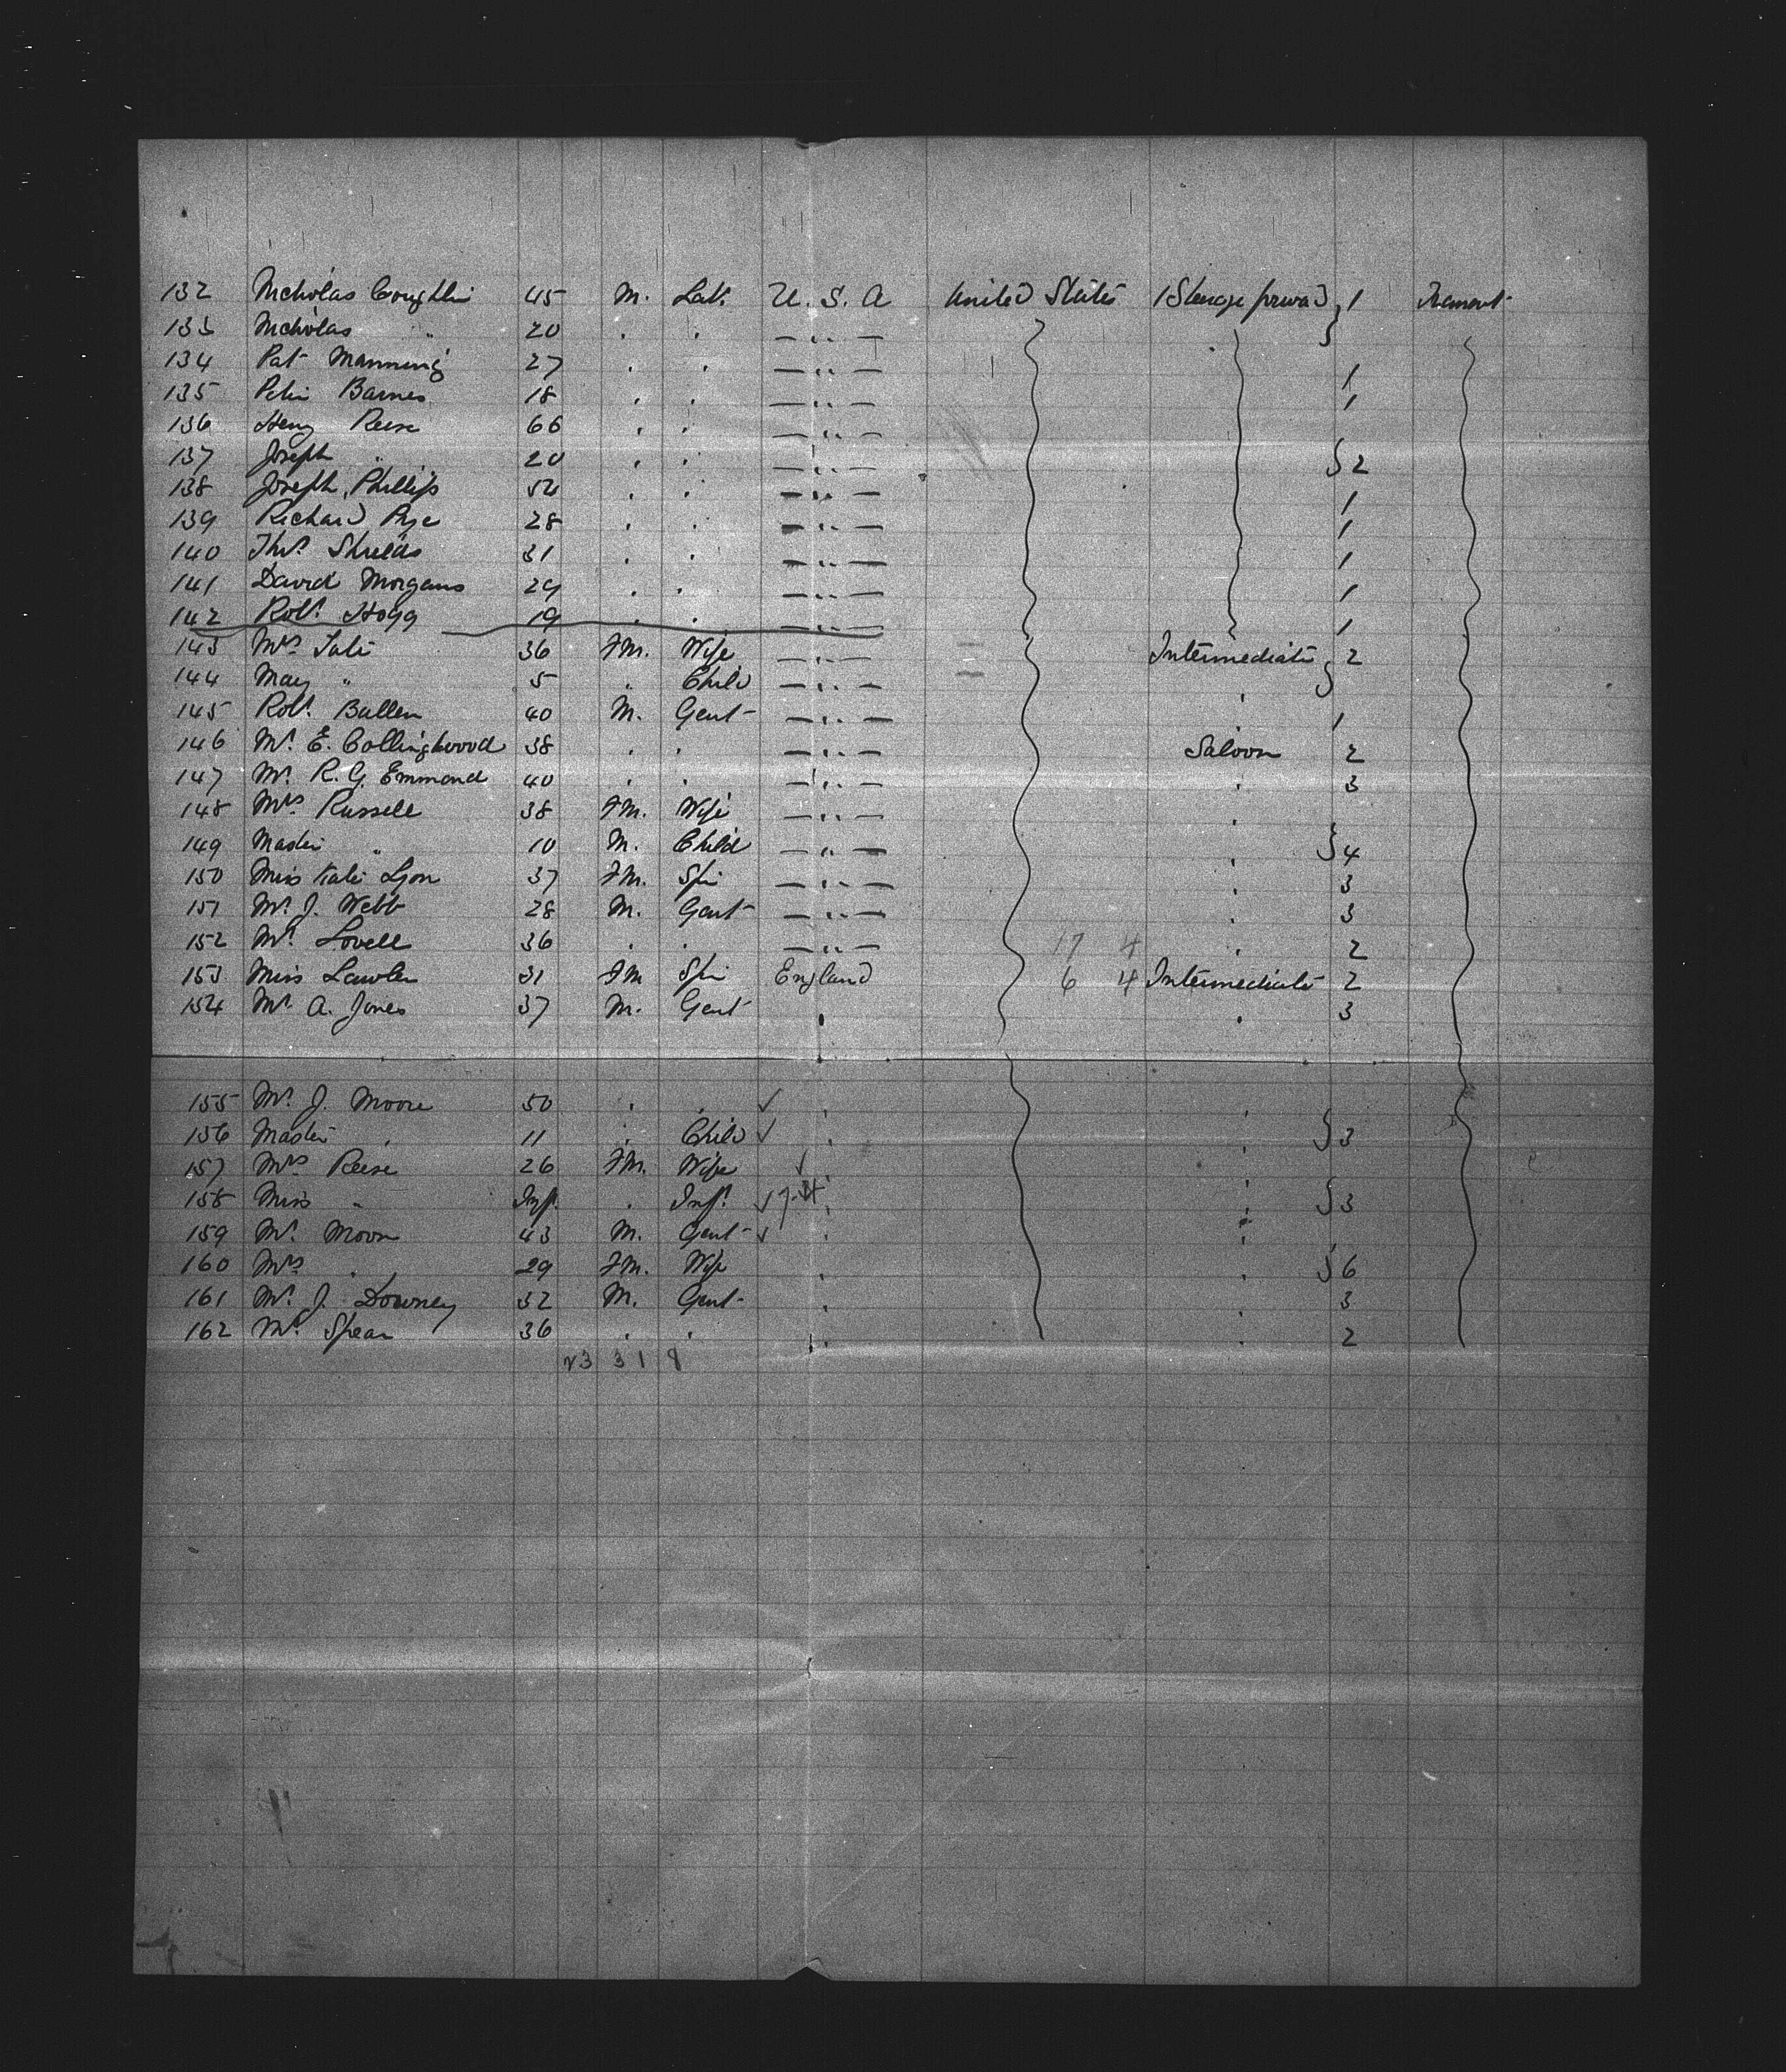 132 Nicholas Coughlin 45 M. Lab. U. S. A United States Steerage forward 1 Perment
133 Nicholas " 20 . . — " —
134 Pat Manning 27 . . — " — 1
135 Peter Barnes 18 . . — " — 1
136 Henry Reese 66 . . — " —
137 Joseph " 20 . . — " — } 2
138 Joseph Phillips 54 . . — " — 1
139 Richard Pye 28 . . — " — 1
140 Thos. Shields 31 . . — " — 1
141 David Morgans 29 . . — " — 1
142 Robt. Hogg 19 . . — " — 1
143 Mrs. Tate 36 FM. Wife — " — Intermediate } 2
144 May " 5 " Child — " —
145 Robt. Bullen 40 M. Gent — " — " 1
146 Mr. E. Collingwood 38 . . — " — Saloon 2
147 Mr. R. G. Emmond 40 . . — " — " 3
148 Mrs. Russell 38 FM. Wife — " — "
149 Master " 10 M. Child — " — " } 4
150 Miss Kate Lyon 37 FM. Spin — " — " 3
151 Mr. J. Webb 28 M. Gent — " — " 3
152 Mr. Lovell 36 . . — " — 17 4 " 2
153 Miss Lawler 31 FM Spin England 6 4 Intermediate 2
154 Mr. A. Jones 37 M. Gent " " 3
155 Mr. J. Moore 50 . . ✓ " "
156 Master " 11 . Child ✓ " " } 3
157 Mrs. Reese 26 FM. Wife ✓ " "
158 Miss " Inf. . Inft. ✓ " " } 3
159 Mr. Moon 43 M. Gent ✓ " "
160 Mrs. " 29 FM. Wife " " } 6
161 Mr. J. Downey 32 M. Gent " " 3
162 Mr. Spear 36 . . " " 2
23 3 1 8